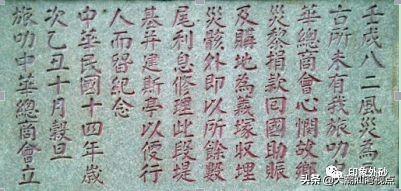 壬戌八二風災為
古所未有我旅叻中
華總商會心憫故鄉
災黎捐款回國助賑
及購地為義塚收埋
災骸外即以所餘數
尾利息修理此段堤
基并建斯亭以便行
人而留紀念
中華民國十四年歲
次乙丑十月穀旦
旅叻中華總商會立
印象外砂